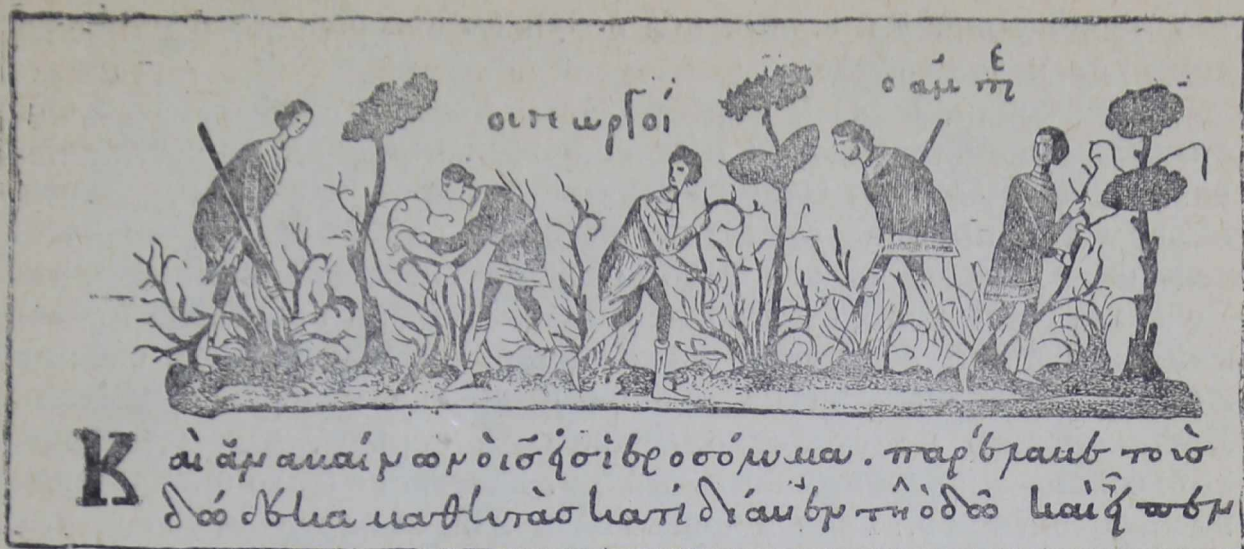 οι γεωργοί
ο ἀμπε
Καὶ ἀναβαίνων ὁ ις εἰς ἱεροσόλυμα. παρέλαβε τοὺς
δώδεκα μαθητὰς κατιδίαν ἐν τῆ ὁδῶ καὶ εἶπεν